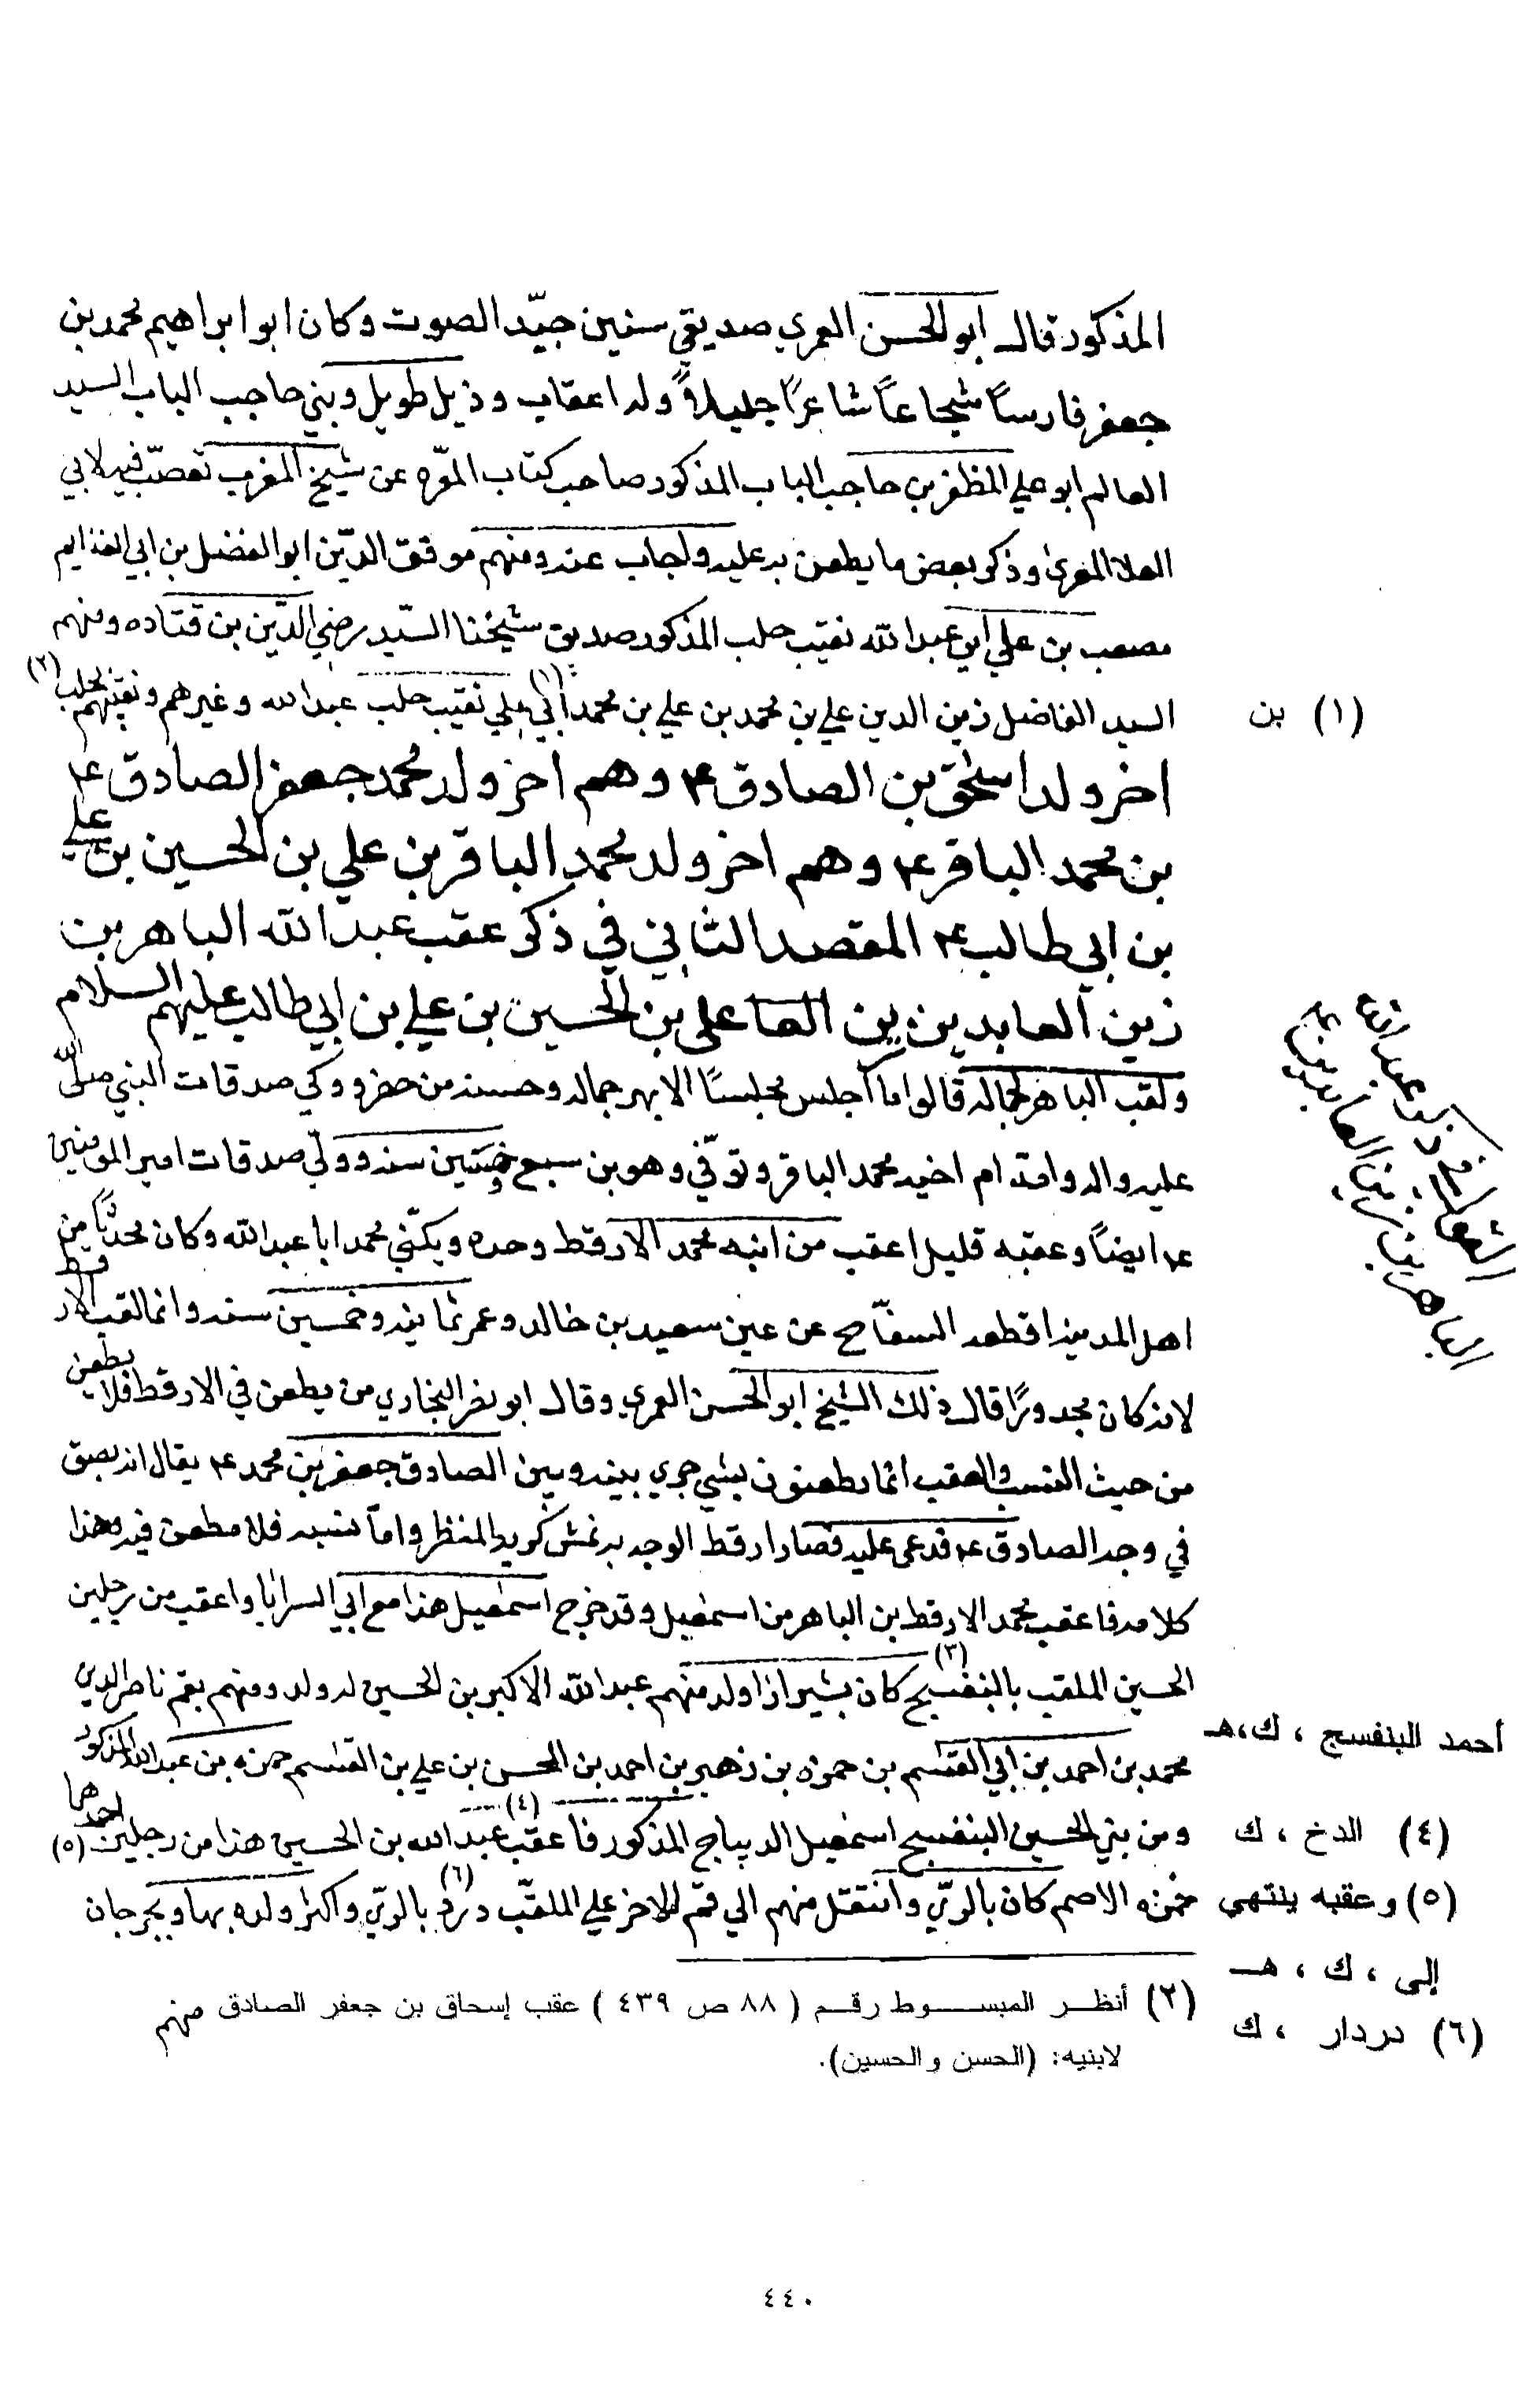 المذكور قال ابو الحسن العمري صديقي سنين جيّد الصوت وكان ابو ابراهيم محمد بن
جعفر فارساً شجاعاً شاعراً جليلاً وله اعقاب وذيل طويل وبني حاجب الباب السيد
العالم ابو علي المظفر بن حاجب الباب المذكور صاحب كتاب عن شيخ المغرب تعصّب فيه لابي
العلا المعرى وذكر بعض ما يطعن به عليه واجاب عنه ومنهم موفق الدّين ابو الفضل بن ابي
مصعب بن علي ابن عبد الله نقيب حلب المذكور صديق شيخنا السّيد رضي الدّين بن قتاده ومنهم
السيد الفاضل زين الدين علي بن محمد بن علي بن محمد (١) أبي علي نقيب حلب عبد الله وغيرهم ونقيبهم بحلب (٢)
(١) بن
اخر ولد اسحٰق بن الصادق ع وهم اخر ولد محمد جعفر الصادق ع
بن محمد الباقر ع وهم اخر ولد محمد الباقر بن علي بن الحسين بن علي
بن ابي طالب ع المقصد الثاني في ذكر عقب عبد الله الباهر بن
زين العابدين بن العا على بن الحسين بن علي بن ابي طالب عليهم السلام
ولقب الباهر لجماله قالوا ما جلس مجلسًا الا بهر جماله وحسنه من حضر وولي صدقات النبي صلّى
عليه واله وامه ام اخيه محمد الباقر وتوفّي وهو بن سبع وخمسين سنه وولّي صدقات امير المومنين
ع ايضاً وعقبه قليل اعقب من ابنه محمد الارقط وحده ويكنّي محمد ابا عبد الله وكان محدثاً من
اهل المدينه اقطعه السفّاح عن عين سعيد بن خالد وعمر ثمانيه وخمسين سنه وانما لقب الارقط
لانه كان مجدورًا قال ذلك الشيخ ابو الحسن العمري وقال ابو نصر البخاري من يطعن في الارقط فلا يطعن
من حيث النسب والعقب انما يطعنون بشي جري بينه وبين الصادق جعفر بن محمد ع يقال انه بصق
في وجه الصادق ع فدعى عليه فصار ارقط الوجه به نمش كريه المنظر وامّا نسبه فلا مطعن فيه وهذا
كلامه فاعقب محمد الارقط بن الباهر من اسمٰعيل وقد خرج اسمٰعيل هذا مع ابي السرايا واعقب من رجلين
الحسين الملقب بالبنفسج (٣) كان بشيراز اولد منهم عبد الله الاكبر بن الحسين له ولد ومنهم بقم ناصر الدين
أحمد البنفسج ، ك،هـ
محمد بن احمد بن ابي القٰسم بن حمزه بن زهير بن احمد بن المحسن بن علي بن القٰسم حمزه بن عبد الله المذكور
ومن بني الحسين البنفسج اسمٰعيل الديباج المذكور فا عقب (٤) عبد الله بن الحسين هذا من رجلين احدهما (٥)
(٤) الدخ ، ك
حمزه الاصم كان بالريّ وانتقل منهم الي قمّ الاخر علي الملقّب (٦) بالريّ واكثر ولده بها وبجرجان
(٥) وعقبه ينتهي
إلى ، ك ، هـ
(٦) دردار ، ك
(٢) أنظر المبسوط رقم ( ٨٨ ص ٤٣٩ ) عقب إسحاق بن جعفر الصادق منهم
لابنيه: (الحسن والحسين).
٤٤٠